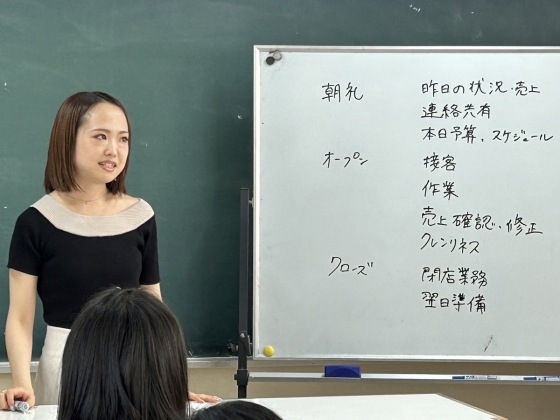 朝礼 昨日の状況・売上
連絡共有
本日予算、スケジュール
オープン 接客
作業
売上確認、修正
クレンリネス
クローズ 閉店業務
翌日準備